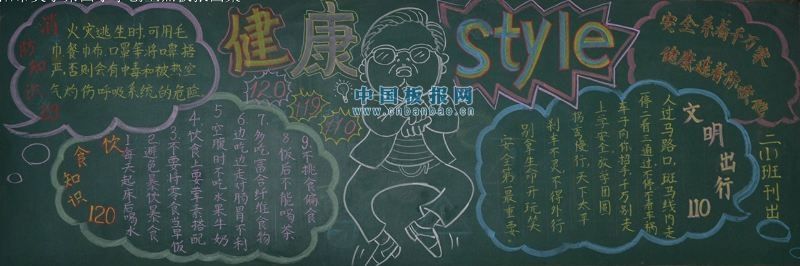 消防知识
火灾逃生时,可用毛
巾餐巾布、口罩等将口鼻捂
严,否则会有中毒和被热空
气灼伤呼吸系统的危险
健康style
120
119
110
中国板报网
www.cnbanbao.cn
安全系着千万家
健康连着你
饮食知识
120
1.每天起床后喝水
2.避免暴饮暴食
3.不要将零食当早饭
4.饮食上要荤素搭配
5.空腹时不吃水果牛奶
6.边吃边走对肠胃不利
7.多吃富含纤维食物
8.饭后不能喝茶
9.不挑食偏食
文明出行
110
人过马路口,斑马线内走
一停二看三通过,不停不看车辆
车子向你招手,千万别走
上学安全放学团圆
拐弯慢行,天下太平
刹车不灵,不得外行
别拿生命开玩笑
安全第一最重要。
二(1)班刊出